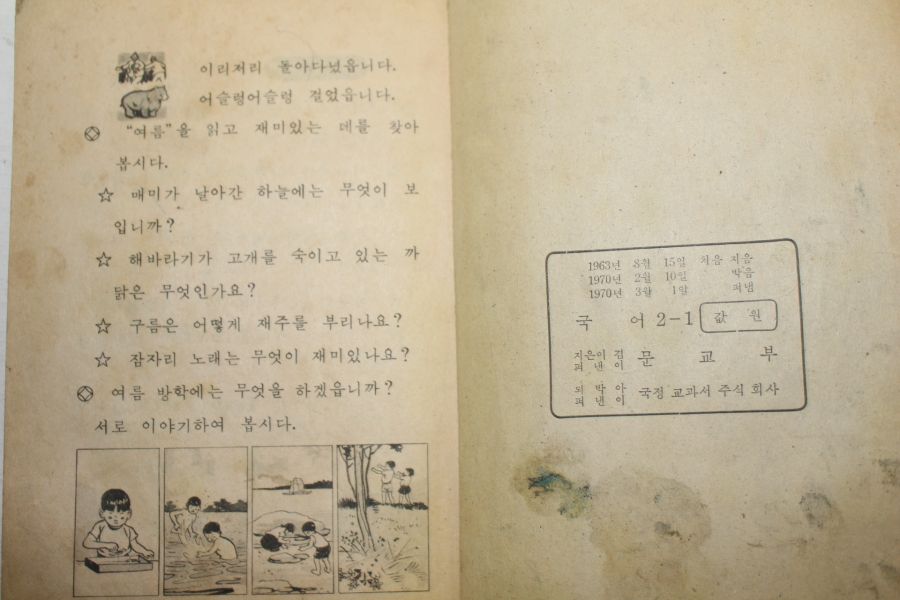 이리저리 돌아다녔읍니다.
어슬렁어슬렁 걸었읍니다.
“여름”을 읽고 재미있는 데를 찾아
봅시다.
☆ 매미가 날아간 하늘에는 무엇이 보
입니까?
☆ 해바라기가 고개를 숙이고 있는 까
닭은 무엇인가요?
☆ 구름은 어떻게 재주를 부리나요?
☆ 잠자리 노래는 무엇이 재미있나요?
여름 방학에는 무엇을 하겠읍니까?
서로 이야기하여 봅시다.
1963년 8월 15일 처음 지음
1970년 2월 10일 박음
1970년 3월 1일 펴냄
국 어 2-1 값 원
지은이 겸
펴 낸 이 문 교 부
되 박 아
펴 낸 이 국정 교과서 주식 회사